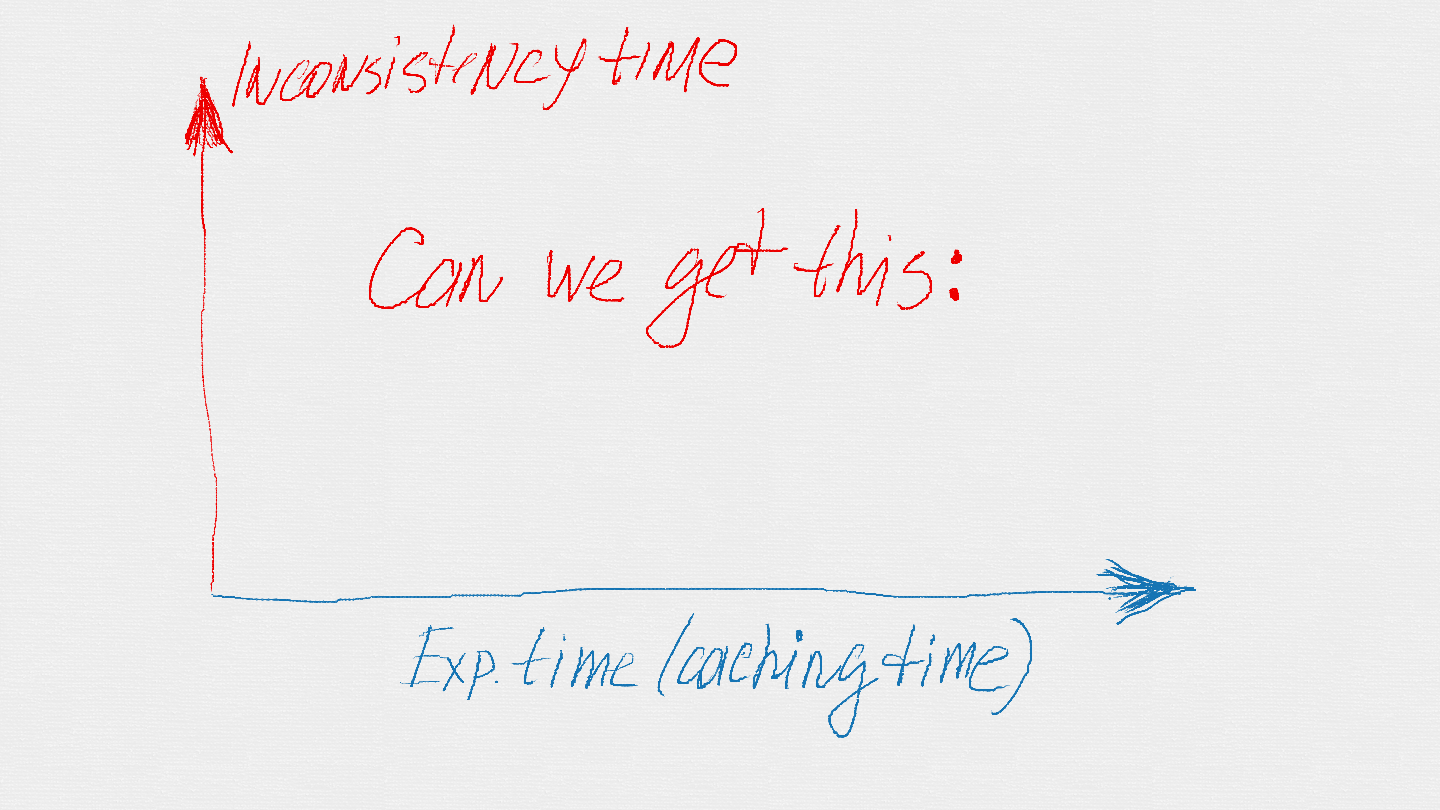 Inconsistency time
Can we get this:
Exp. time (caching time)